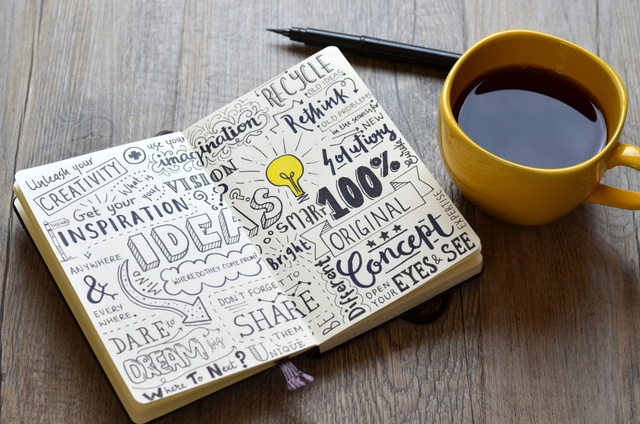 Unleash your
CREATIVITY!
use your
imagination
Get your
INSPIRATION
VISION
ON
IDEAS
ANYWHERE
&
EVERY
WHERE
MIND
WHERE DO THEY COME FROM?
DON'T FORGET
TO
SHARE
THEM
DARE
to
DREAM
big
Where To Next?
UNIQUE
RECYCLE
OLD IDEAS
Rethink
OLD PROBLEMS
in the search for
NEW
Solutions
SMART
100%
ORIGINAL
Bright
Concept
BE
Different
OPEN
YOUR
EYES & SEE
EXPERTISE